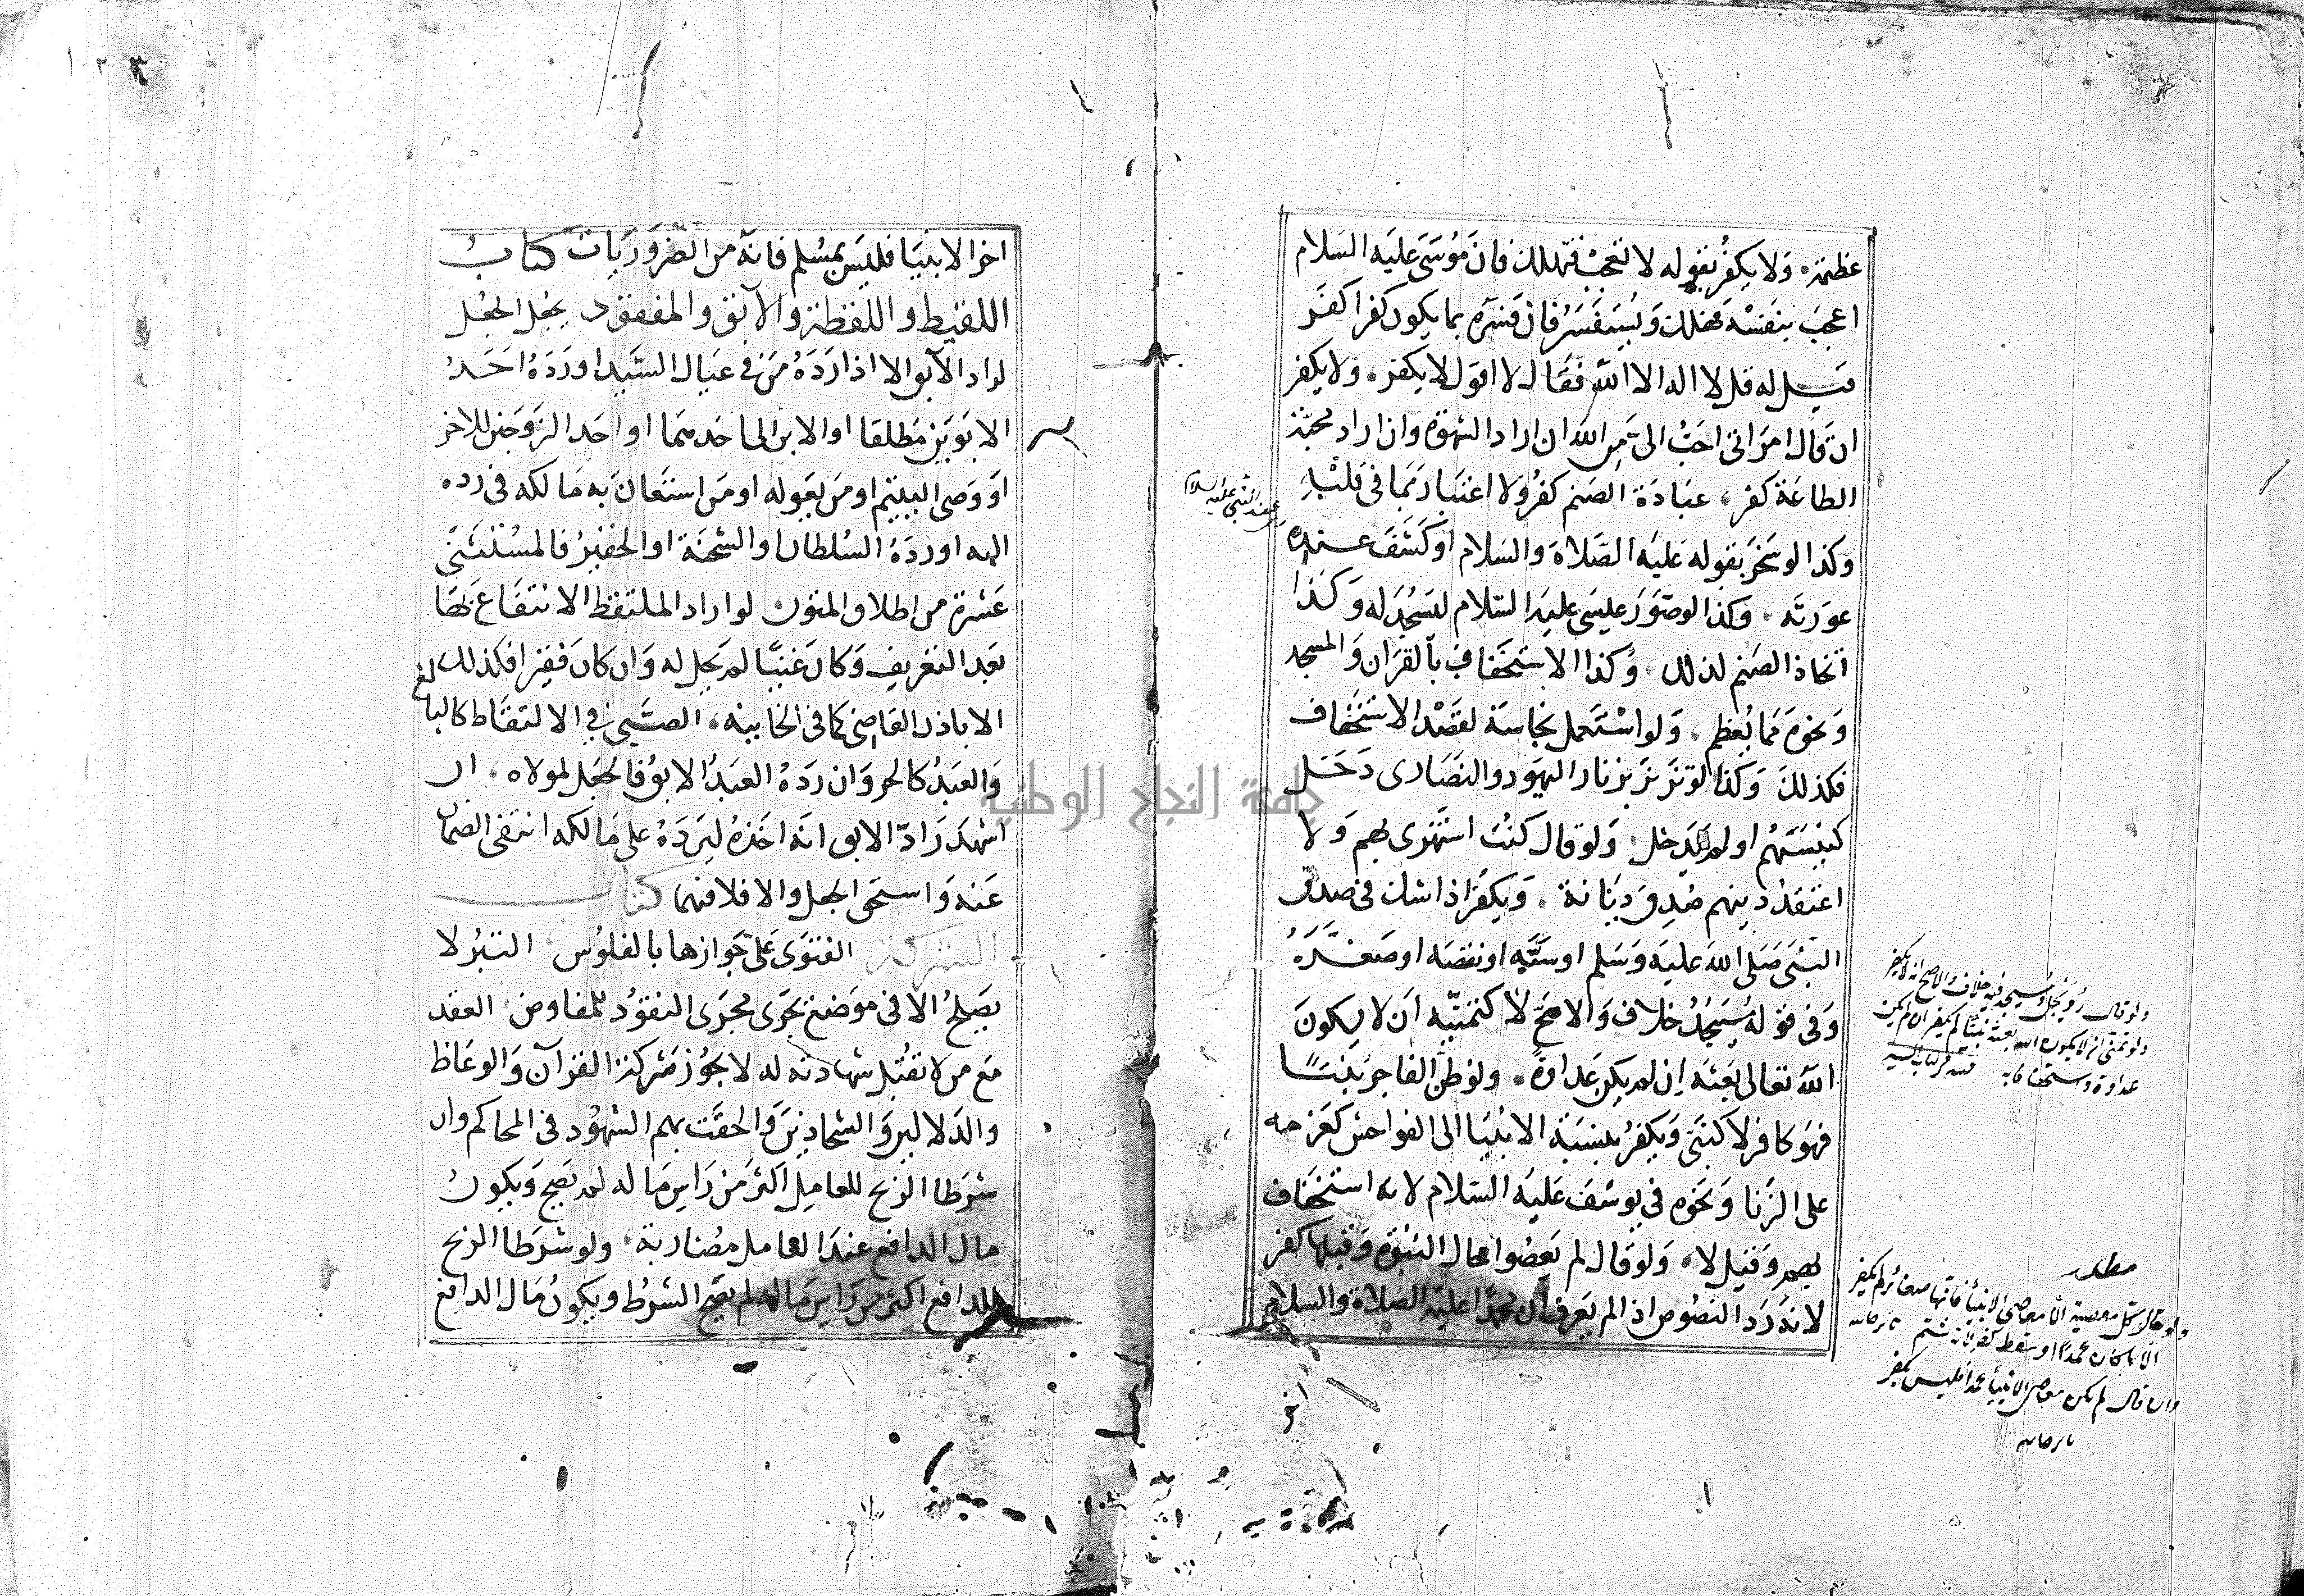 عظمته ولا يكفر بقوله لا تعجب فتهلك فان موسى عليه السلام
اعجب بنفسه فهلك ويستفسر فان فسره بما يكون كفرا كفر
قيل له قل لا اله الا الله فقال لا اقول لا يكفر ولا يكفر
ان قال امراتى احب الى من الله ان اراد الشهوة وان اراد محبة
الطاعة كفر عبادة الصنم كفر ولا اعتبار بما فى قلبه
وكذا لو سخر بقوله عليه الصلاة والسلام او كشف عنده
عورته وكذا لو صور عيسى عليه السلام ليسجد له وكذا
اتخاذ الصنم لذلك وكذا الاستخفاف بالقران والمسجد
ونحوه مما يعظم ولو استعمل نجاسة لقصد الاستخفاف
فكذلك وكذا لو تزنر بزنار اليهود والنصارى دخل
كنيستهم او لم يدخل ولو قال كنت استهزى بهم ولا
اعتقد دينهم صدق ديانة ويكفر اذا شك فى صدق
النبى صلى الله عليه وسلم او سبه او نقصه او صغره
وفى قوله مسيجد خلاف والاصح لا كتمنيه ان لا يكون
الله تعالى بعثه ان لم يكن عداوة ولو ظن الفاجر نبيا
فهو كافر لا كنبى ويكفر بنسبة الانبيا الى الفواحش كعزمه
على الزنا ونحوه فى يوسف عليه السلام لانه استخفاف
بهم وقيل لا ولو قال لم يعصوا حال النبوة وقبلها كفر
لانه رد النصوص اذا لم يعرف ان محمدا عليه الصلاة والسلام
عند النبي عليه السلام
ولو قال مسيجد فيه خلاف والاصح انه لا يكفر
ولو تمنى ان لا يكون الله بعثه نبيا لم يكفر ان لم يكن
عداوة واستخفافا به
مطلب
ولو قال كل معصية الا معاصى الانبياء فانها صغائر لم يكفر
وان قال لم تكن معاصى الانبياء عمدا فليس بكفر
اخر
اخر الانبيا فليس بمسلم فانه من الضروريات كتاب
اللقيط واللقطة والآبق والمفقود يجعل الجعل
لراد الآبق الا اذا رده من فى عيال السيد او رده احد
الابوين مطلقا او الابن الى احدهما او احد الزوجين للاخر
او وصى اليتيم او من يعوله او من استعان به مالكه فى رده
اليه او رده السلطان والشحنة او الخفير فالمستثنى
عشرة من اطلاق المتون لو اراد الملتقط الانتفاع بها
بعد التعريف وكان غنيا لم يحل له وان كان فقيرا فكذلك
الا باذن القاضى كما فى الخانية الصبى فى الالتقاط كالبالغ
والعبد كالحر وان رده العبد الابق فالجعل لمولاه ان
اشهد راد الابق انه اخذه ليرده على مالكه انتفى الضمان
عنه واستحق الجعل والا فلا فيهما كتاب
الشركة الفتوى على جوازها بالفلوس التبر لا
يصلح الا فى موضع يجرى مجرى النقود للمفاوض العقد
مع من لا تقبل شهادته له لا يجوز شركة القرآن والوعاظ
والدلالين والشحاذين والحقت بهم الشهود فى المحاكم وان
شرطا الربح للعامل اكثر من راس ماله لم يصح ويكون
مال الدافع عند العامل مضاربة ولو شرطا الربح
للدافع اكثر من راس ماله لم يصح الشرط ويكون مال الدافع
جامعة النجاح الوطنية